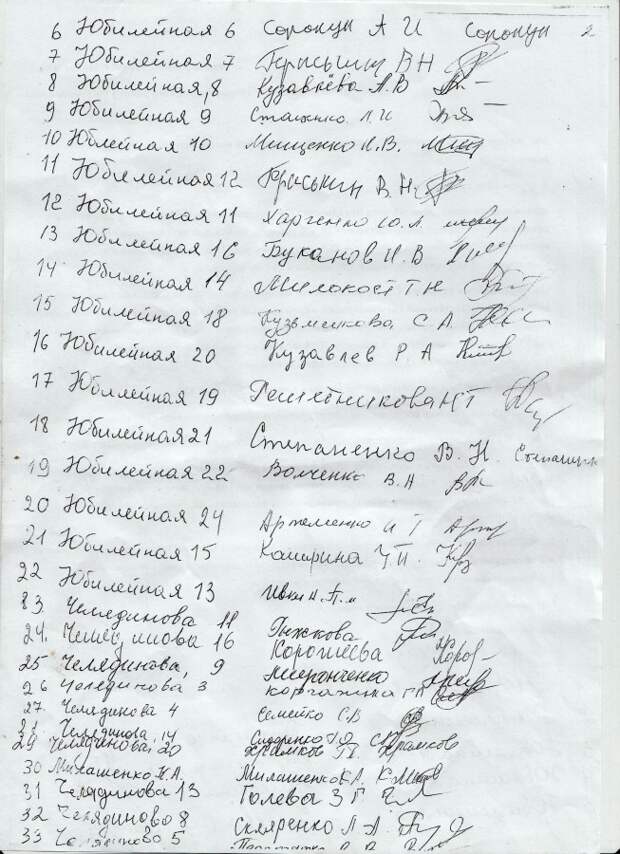 6 Юбилейная 6 Сорокун А И Сорокун 2
7 Юбилейная 7 Гераськин В Н
8 Юбилейная, 8 Кузавлёва А. В
9 Юбилейная 9 Л. И
10 Юбилейная 10 Мищенко И. В.
11 Юбилейная 12 Гераськин В. Н.
12 Юбилейная 11 Харченко Ю. Л.
13 Юбилейная 16 Буканов И. В
14 Юбилейная 14 Милокост Т Н
15 Юбилейная 18 Кузьменкова С А.
16 Юбилейная 20 Кузавлев Р А
17 Юбилейная 19 Решетникова Н Т
18 Юбилейная 21 Степаненко В. Н.
19 Юбилейная 22 Волченко В. Н
20 Юбилейная 24 Артеменко И Т
21 Юбилейная 15 Кашарина
22 Юбилейная 13
23. Челядинова 11 Рыжкова
24. 16 Корошева
25 Челядинова, 9 Миронченко
26 Челядинова 3
27. Челядинова 4 Семейко С В
Челядинова 14 Сидоренко
29 Челядинова, 20 Храмков Храмков
30 Милашенко К. А. Милашенко К А.
31 Челядинова 13 Голева З Г
32 Челядиново 8 Скляренко Л А.
33 5